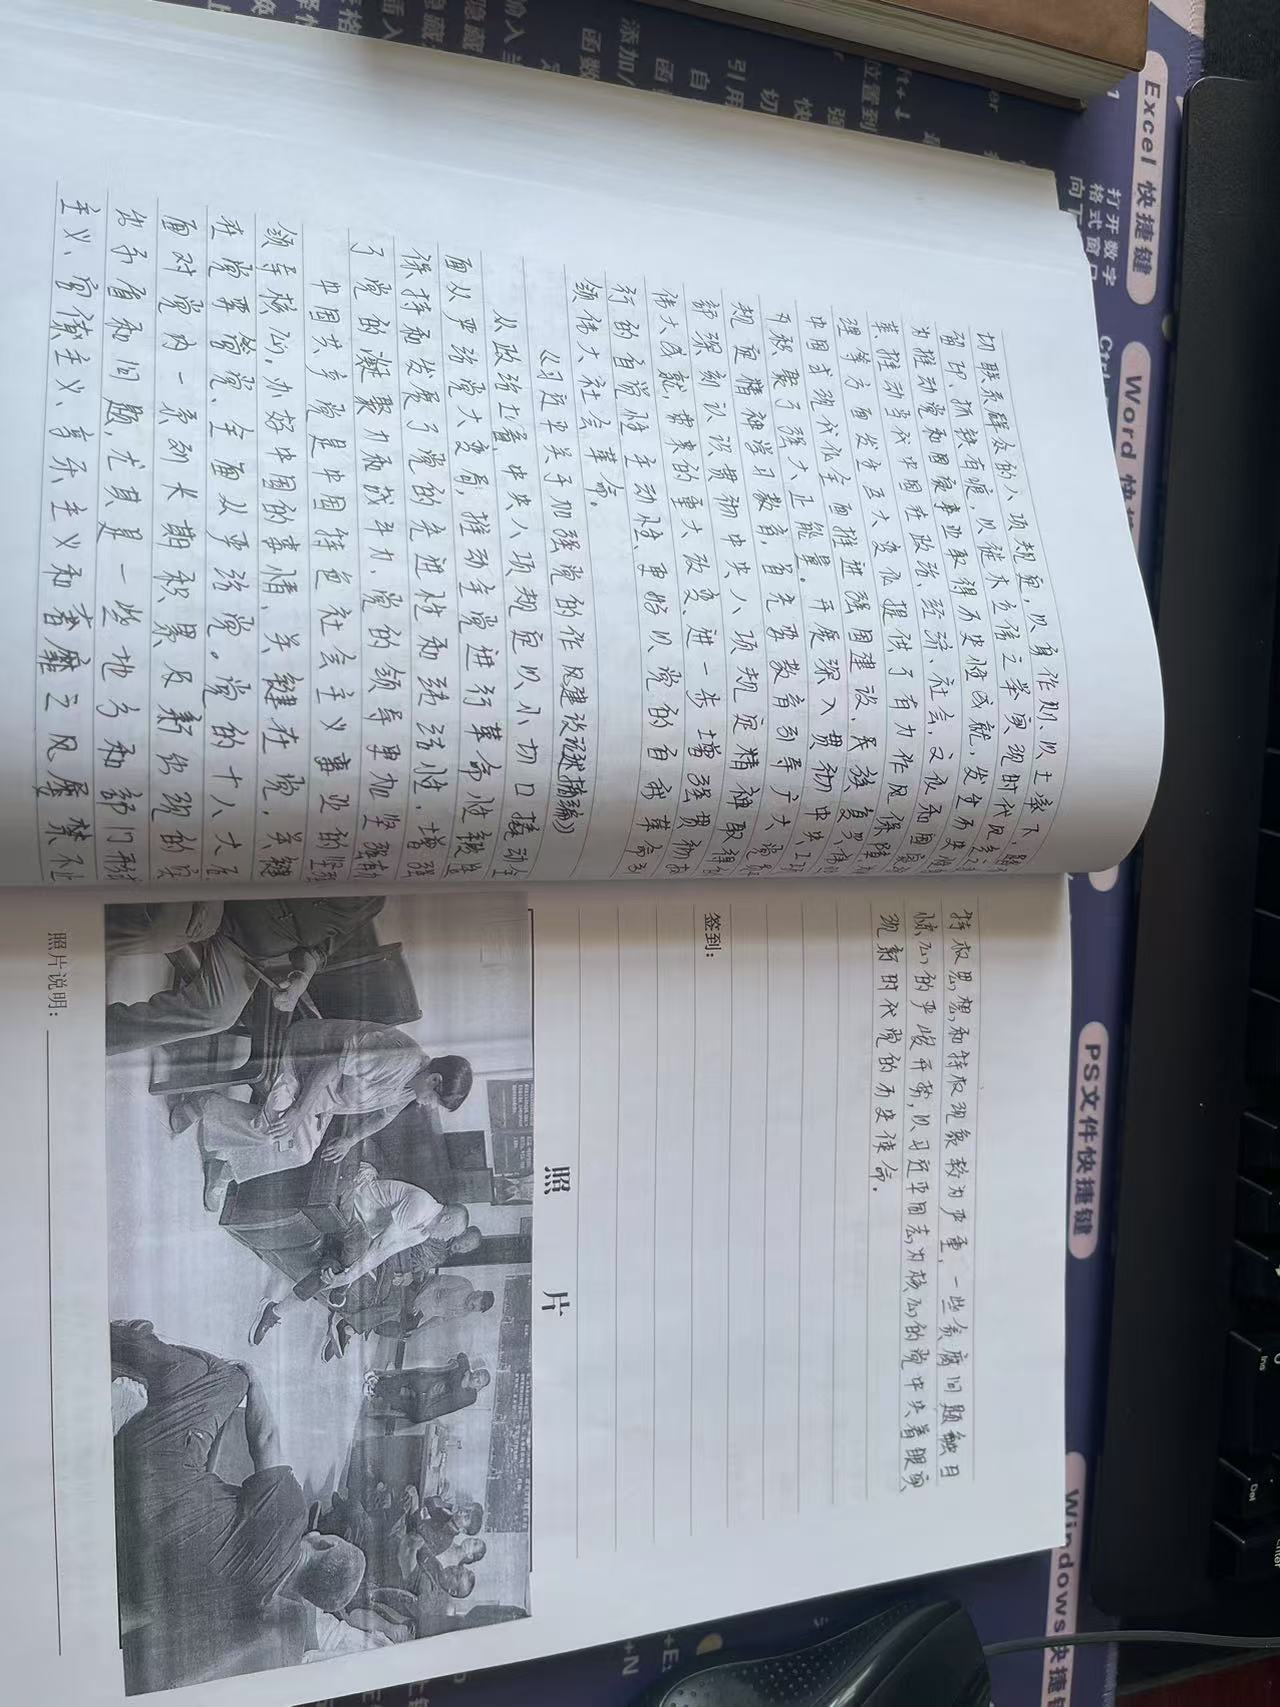 切联系群众的八项规定，以身作则、以上率下，踏石
留印、抓铁有痕，以徙木立信之举实现时代风气之
为推动党和国家事业取得历史性成就，发生历史性
革，推动当代中国在政治、经济、社会、文化和国家
理等方面发生巨大变化提供了有力作风保障
中国式现代化全面推进强国建设、民族复兴伟
开积聚了强大正能量。开展深入贯彻中央八项
规定精神学习教育，首先要教育引导广大党员
部深刻认识贯彻中央八项规定精神取得的
伟大成就，带来的重大改变、进一步增强贯彻
行的自觉性主动性、更好以党的自我革命引
领伟大社会革命。
《习近平关于加强党的作风建设论述摘编》
从政治上看，中央八项规定以小切口撬动全
面从严治党大变局，推动全党进行革命性锻造
保持和发展了党的先进性和纯洁性，增强
了党的凝聚力和战斗力、党的领导更加坚强有
中国共产党是中国特色社会主义事业的坚强
领导核心，办好中国的事情，关键在党，关键
在党要管党、全面从严治党。党的十八大后
面对党内一系列长期积累及新出现的突
出矛盾和问题，尤其是一些地方和部门形式
主义、官僚主义、享乐主义和奢靡之风屡禁不止
特权思想和特权现象较为严重，一些贪腐问题触目
惊心的严峻形势，以习近平同志为核心的党中央着眼实
现新时代党的历史使命。
签到：
照 片
照片说明：
Excel 快捷键
打开数字
格式窗口
Word 快捷
PS文件快捷键
Windows 快捷键
Ins
Del
Enter
+N